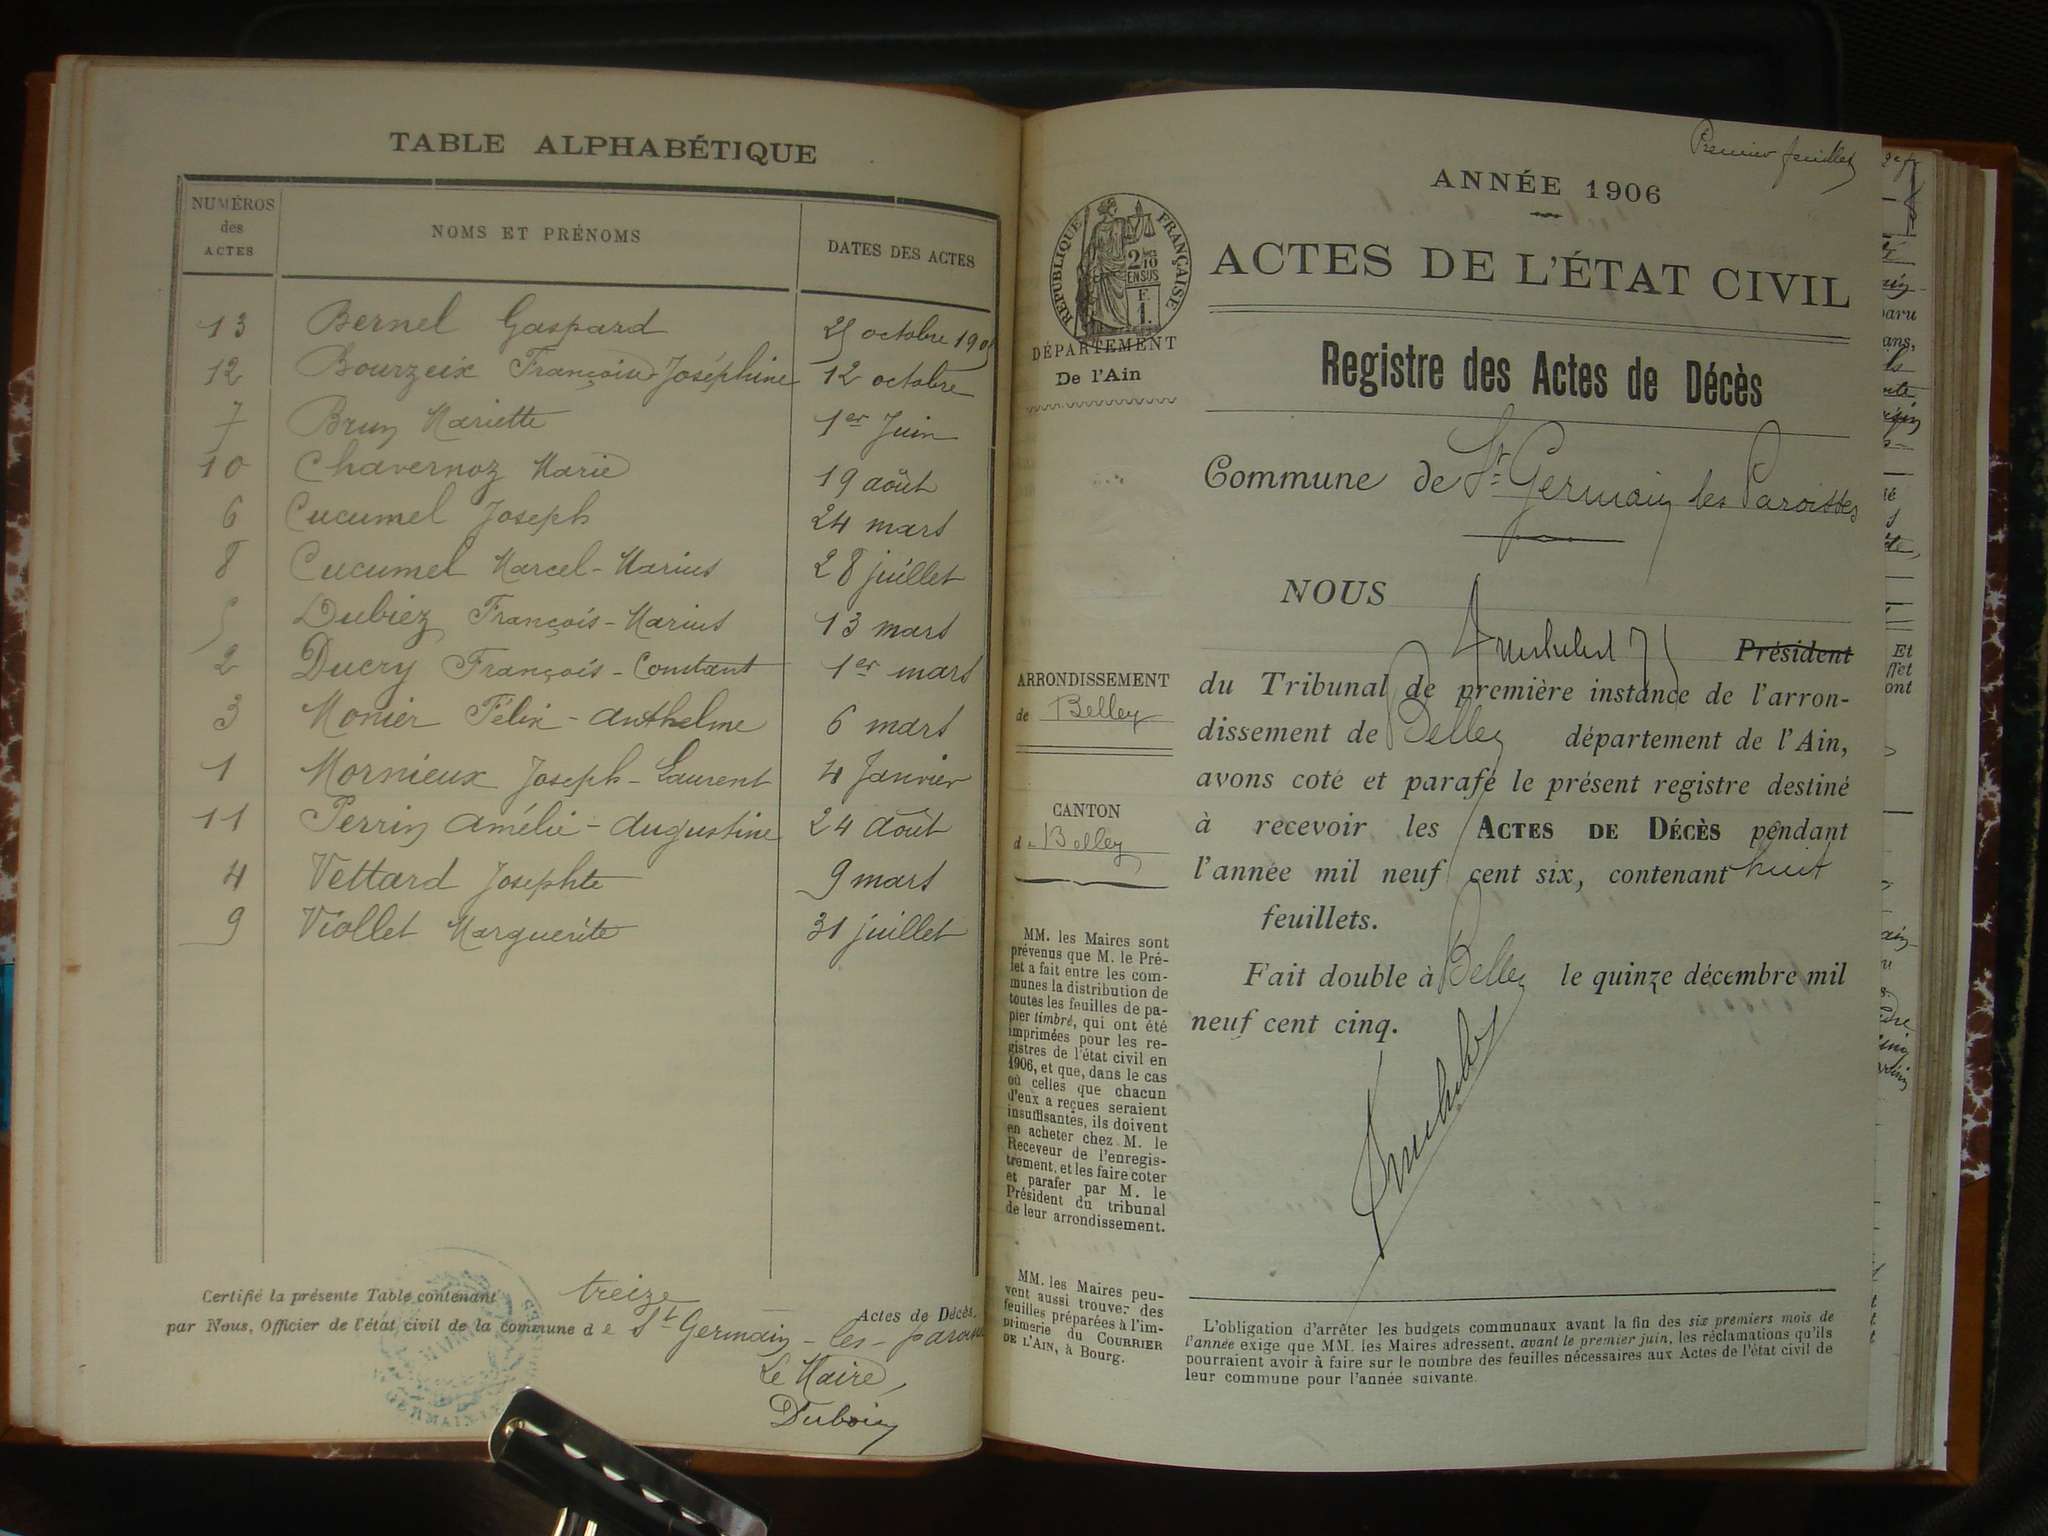 TABLE ALPHABÉTIQUE
NUMÉROS des ACTES
NOMS ET PRÉNOMS
DATES DES ACTES
13 Bernel Gaspard 25 octobre 1905
12 Bourzeix Françoise-Joséphine 12 octobre
7 Brun Mariette 1er Juin
10 Chavernoz Marie 19 août
6 Cucumel Joseph 24 mars
8 Cucumel Marcel-Marius 28 juillet
5 Dubiez François-Marius 13 mars
2 Ducry François-Constant 1er mars
3 Monier Félix-Anthelme 6 mars
1 Mornieux Joseph-Laurent 4 Janvier
11 Perrin Amélie-Augustine 24 août
4 Vettard Josephte 9 mars
9 Viollet Marguerite 31 juillet
Certifié la présente Table contenant treize Actes de Décès,
par Nous, Officier de l'état civil de la commune de St Germain-les-
Le Maire,
Premier feuillet
ANNÉE 1906
RÉPUBLIQUE FRANÇAISE
ACTES DE L'ÉTAT CIVIL
DÉPARTEMENT
De l'Ain
Registre des Actes de Décès
Commune de St Germain les Paroisses
NOUS
Président
du Tribunal de première instance de l'arron-
dissement de Belley département de l'Ain,
avons coté et parafé le présent registre destiné
à recevoir les ACTES DE DÉCÈS pendant
l'année mil neuf cent six, contenant huit
feuillets.
Fait double à Belley le quinze décembre mil
neuf cent cinq.
ARRONDISSEMENT
de Belley
CANTON
de Belley
MM. les Maires sont
prévenus que M. le Pré-
fet a fait entre les com-
munes la distribution de
toutes les feuilles de pa-
pier timbré, qui ont été
imprimées pour les re-
gistres de l'état civil en
1906, et que, dans le cas
où celles que chacun
d'eux a reçues seraient
insuffisantes, ils doivent
en acheter chez M. le
Receveur de l'enregis-
trement, et les faire coter
et parafer par M. le
Président du tribunal
de leur arrondissement.
MM. les Maires peu-
vent aussi trouver des
feuilles préparées à l'im-
primerie du COURRIER
DE L'AIN, à Bourg.
L'obligation d'arrêter les budgets communaux avant la fin des six premiers mois de
l'année exige que MM. les Maires adressent, avant le premier juin, les réclamations qu'ils
pourraient avoir à faire sur le nombre des feuilles nécessaires aux Actes de l'état civil de
leur commune pour l'année suivante.